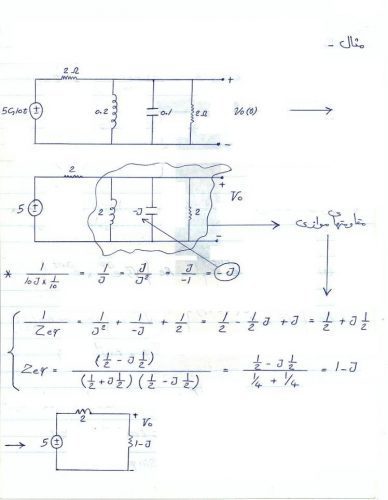 مثال -
2Ω
5Cos10t
0.2
0.1
2Ω
+
-
V₀(t)
2
5
2
-J
2
+
-
V₀
مقاومتهای موازی
* 1/(10J×1/10) = 1/J = J/J² = J/-1 = -J
1/Zeq = 1/J2 + 1/-J + 1/2 = 1/2 - 1/2 J + J = 1/2 + J 1/2
Zeq = (1/2 - J 1/2)/((1/2 + J 1/2)(1/2 - J 1/2)) = (1/2 - J 1/2)/(1/4 + 1/4) = 1-J
2
5
+
V₀
1-J